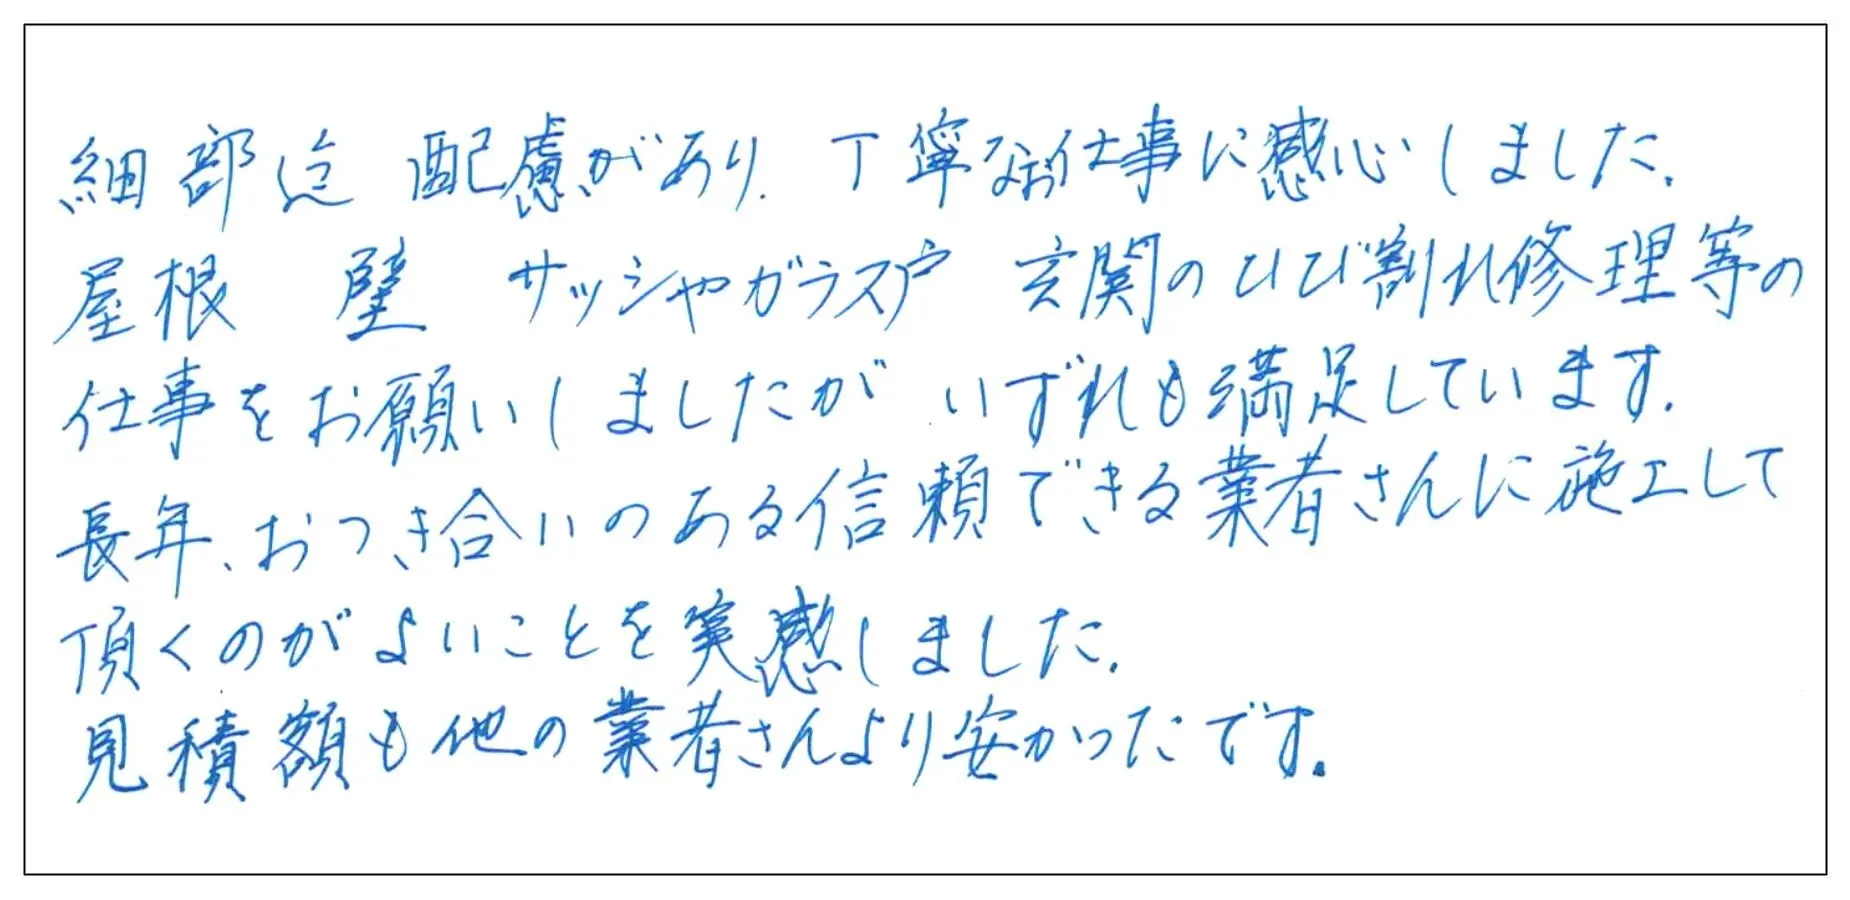 細部迄 配慮があり. 丁寧なお仕事に感心しました.
屋根 壁 サッシやガラス戸 玄関のひび割れ修理等の
仕事をお願いしましたが いずれも満足しています.
長年、おつき合いのある信頼できる業者さんに施工して
頂くのがよいことを実感しました.
見積額も他の業者さんより安かったです.